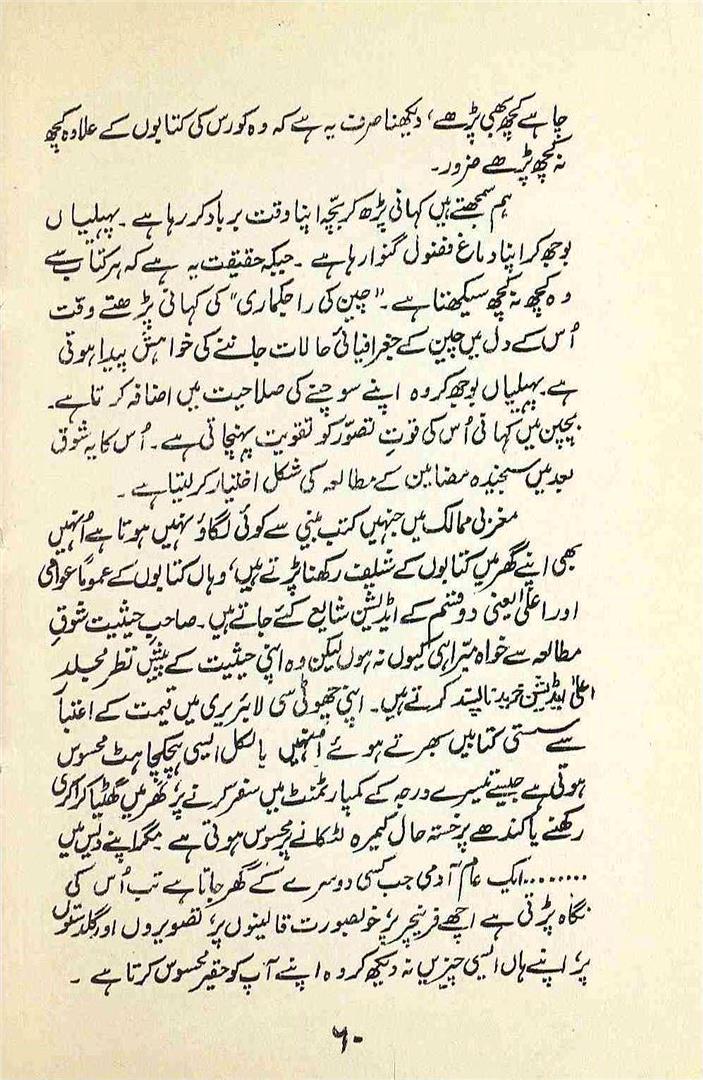 چاہے کچھ بھی پڑھے، دیکھنا صرف یہ ہے کہ وہ کورس کی کتابوں کے علاوہ کچھ
نہ کچھ پڑھے ضرور۔
ہم سمجھتے ہیں کہانی پڑھ کر بچّہ اپنا وقت برباد کر رہا ہے۔ پہیلیاں
بوجھ کر اپنا دماغ فضول گنوا رہا ہے۔ جبکہ حقیقت یہ ہے کہ ہر کتاب سے
وہ کچھ نہ کچھ سیکھتا ہے۔ "چین کی راجکماری" کی کہانی پڑھتے وقت
اُس کے دل میں چین کے جغرافیائی حالات جاننے کی خواہش پیدا ہوتی
ہے۔ پہیلیاں بوجھ کر وہ اپنے سوچنے کی صلاحیت میں اضافہ کرتا ہے۔
بچپن میں کہانی اُس کی قوتِ تصوّر کو تقویت پہنچاتی ہے۔ اُس کا یہ شوق
بعد میں سنجیدہ مضامین کے مطالعہ کی شکل اختیار کر لیتا ہے۔
مغربی ممالک میں جنہیں کتب بینی سے کوئی لگاؤ نہیں ہوتا ہے اُنہیں
بھی اپنے گھر میں کتابوں کے شیلف رکھنا پڑتے ہیں، وہاں کتابوں کے عموماً عوامی
اور اعلیٰ یعنی دو قسم کے ایڈیشن شایع کئے جاتے ہیں۔ صاحبِ حیثیت شوقِ
مطالعہ سے خواہ مبرّا ہی کیوں نہ ہوں لیکن وہ اپنی حیثیت کے پیشِ نظر مجلد
اعلیٰ ایڈیشن خریدنا پسند کرتے ہیں۔ اپنی چھوٹی سی لائبریری میں قیمت کے اعتبار
سے سستی کتابیں بھرتے ہوئے اُنہیں بالکل ایسی ہچکچاہٹ محسوس
ہوتی ہے جیسے تیسرے درجہ کے کمپارٹمنٹ میں سفر کرنے پر، گھر میں گھٹیا کراکری
رکھنے یا کندھے پر خستہ حال کیمرہ لٹکانے پر محسوس ہوتی ہے۔ مگر اپنے دیس میں
........ ایک عام آدمی جب کسی دوسرے کے گھر جاتا ہے تب اُس کی
نگاہ پڑتی ہے اچھے فرنیچر پر، خوبصورت قالینوں پر، تصویروں اور گلدستوں
پر، اپنے ہاں ایسی چیزیں نہ دیکھ کر وہ اپنے آپ کو حقیر محسوس کرتا ہے۔
۶۰